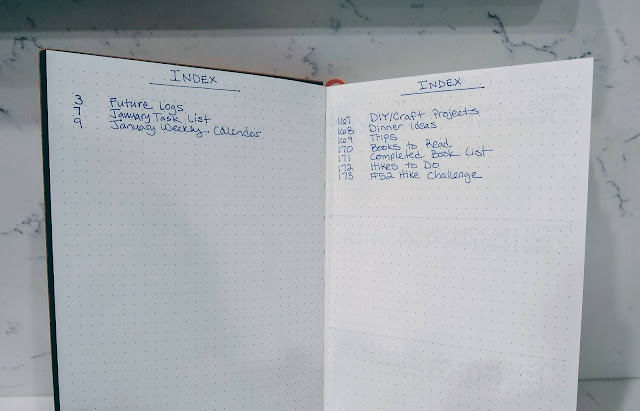 INDEX
3 Future Logs
7 January Task List
9 January Weekly Calendar
INDEX
167 DIY/Craft Projects
168 Dinner Ideas
169 Trips
170 Books to Read
171 Completed Book List
172 Hikes to Do
173 #52 Hike Challenge